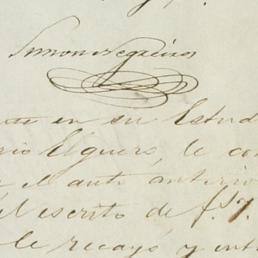 Simon Negreiros
en su Estud
rio Elguera, le con
el auto anterio
el escrito de f. 7.
le recayó y ent